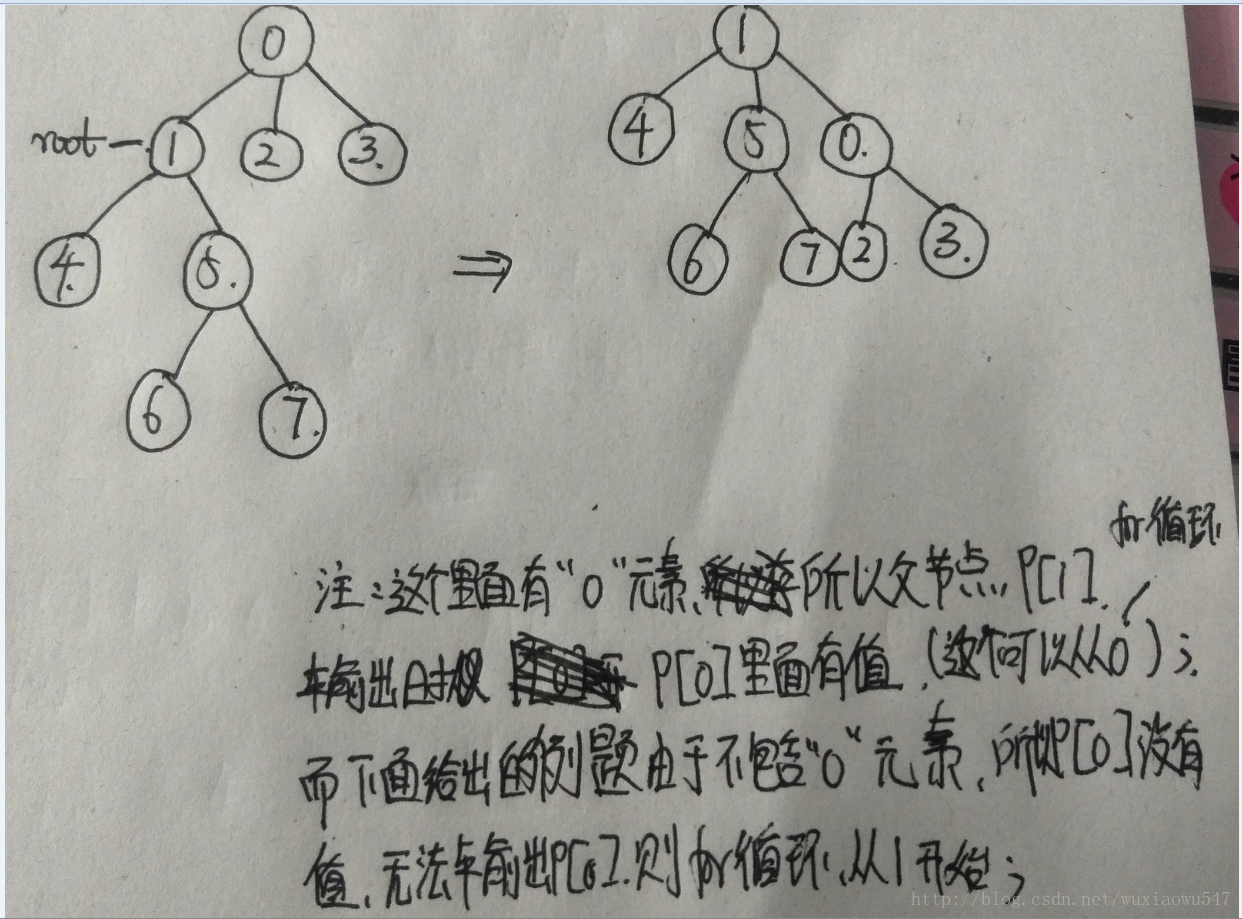 0
1
root
1
2
3.
4
5
0.
4.
5.
6
7
2
3.
⇒
6
7.
for循环
注:这个里面有“0”元素, 所以父节点 P[1].
输出时从 P[0]里面有值,(这个可以从0);
而下面给出的例题由于不包含“0”元素,所以P[0]没有
值,无法输出P[0].则for循环,从1开始;
http://blog.csdn.net/wuxiaowu547